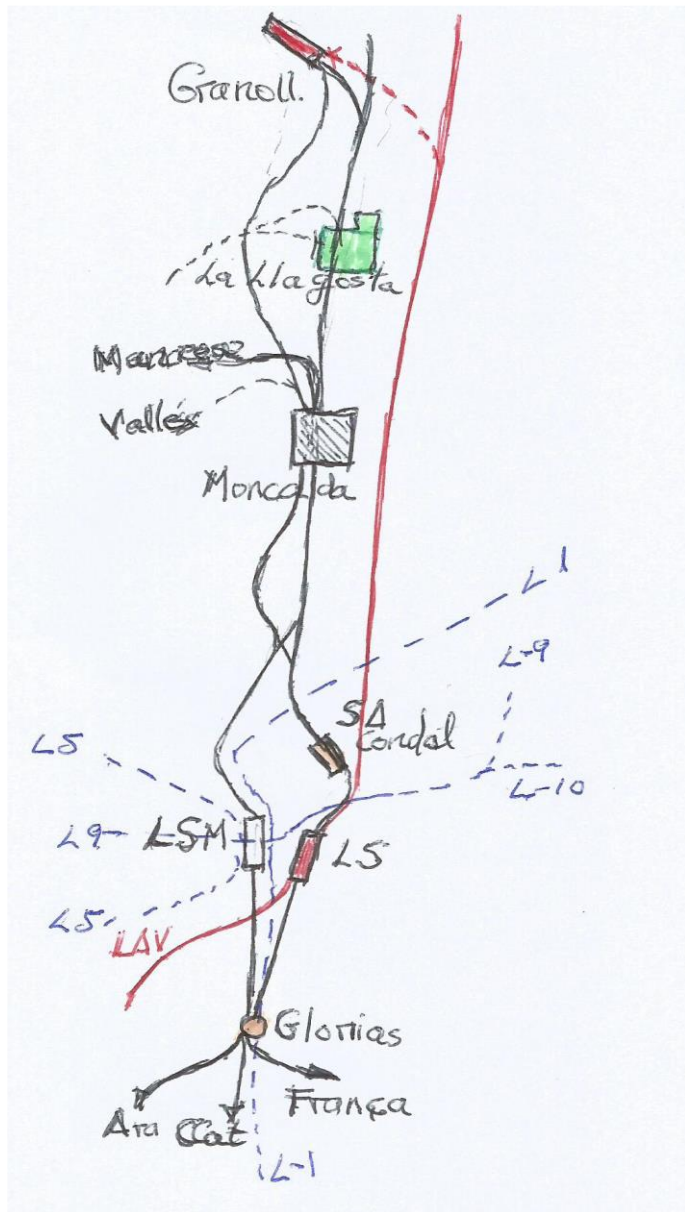 Granoll.
La Llagosta
Manresa
Vallés
Moncada
L1
L-9
SA
Condal
L5
L-10
L9
LSM
LS
L5
LAV
Glorias
França
Ara
CCat
L-1